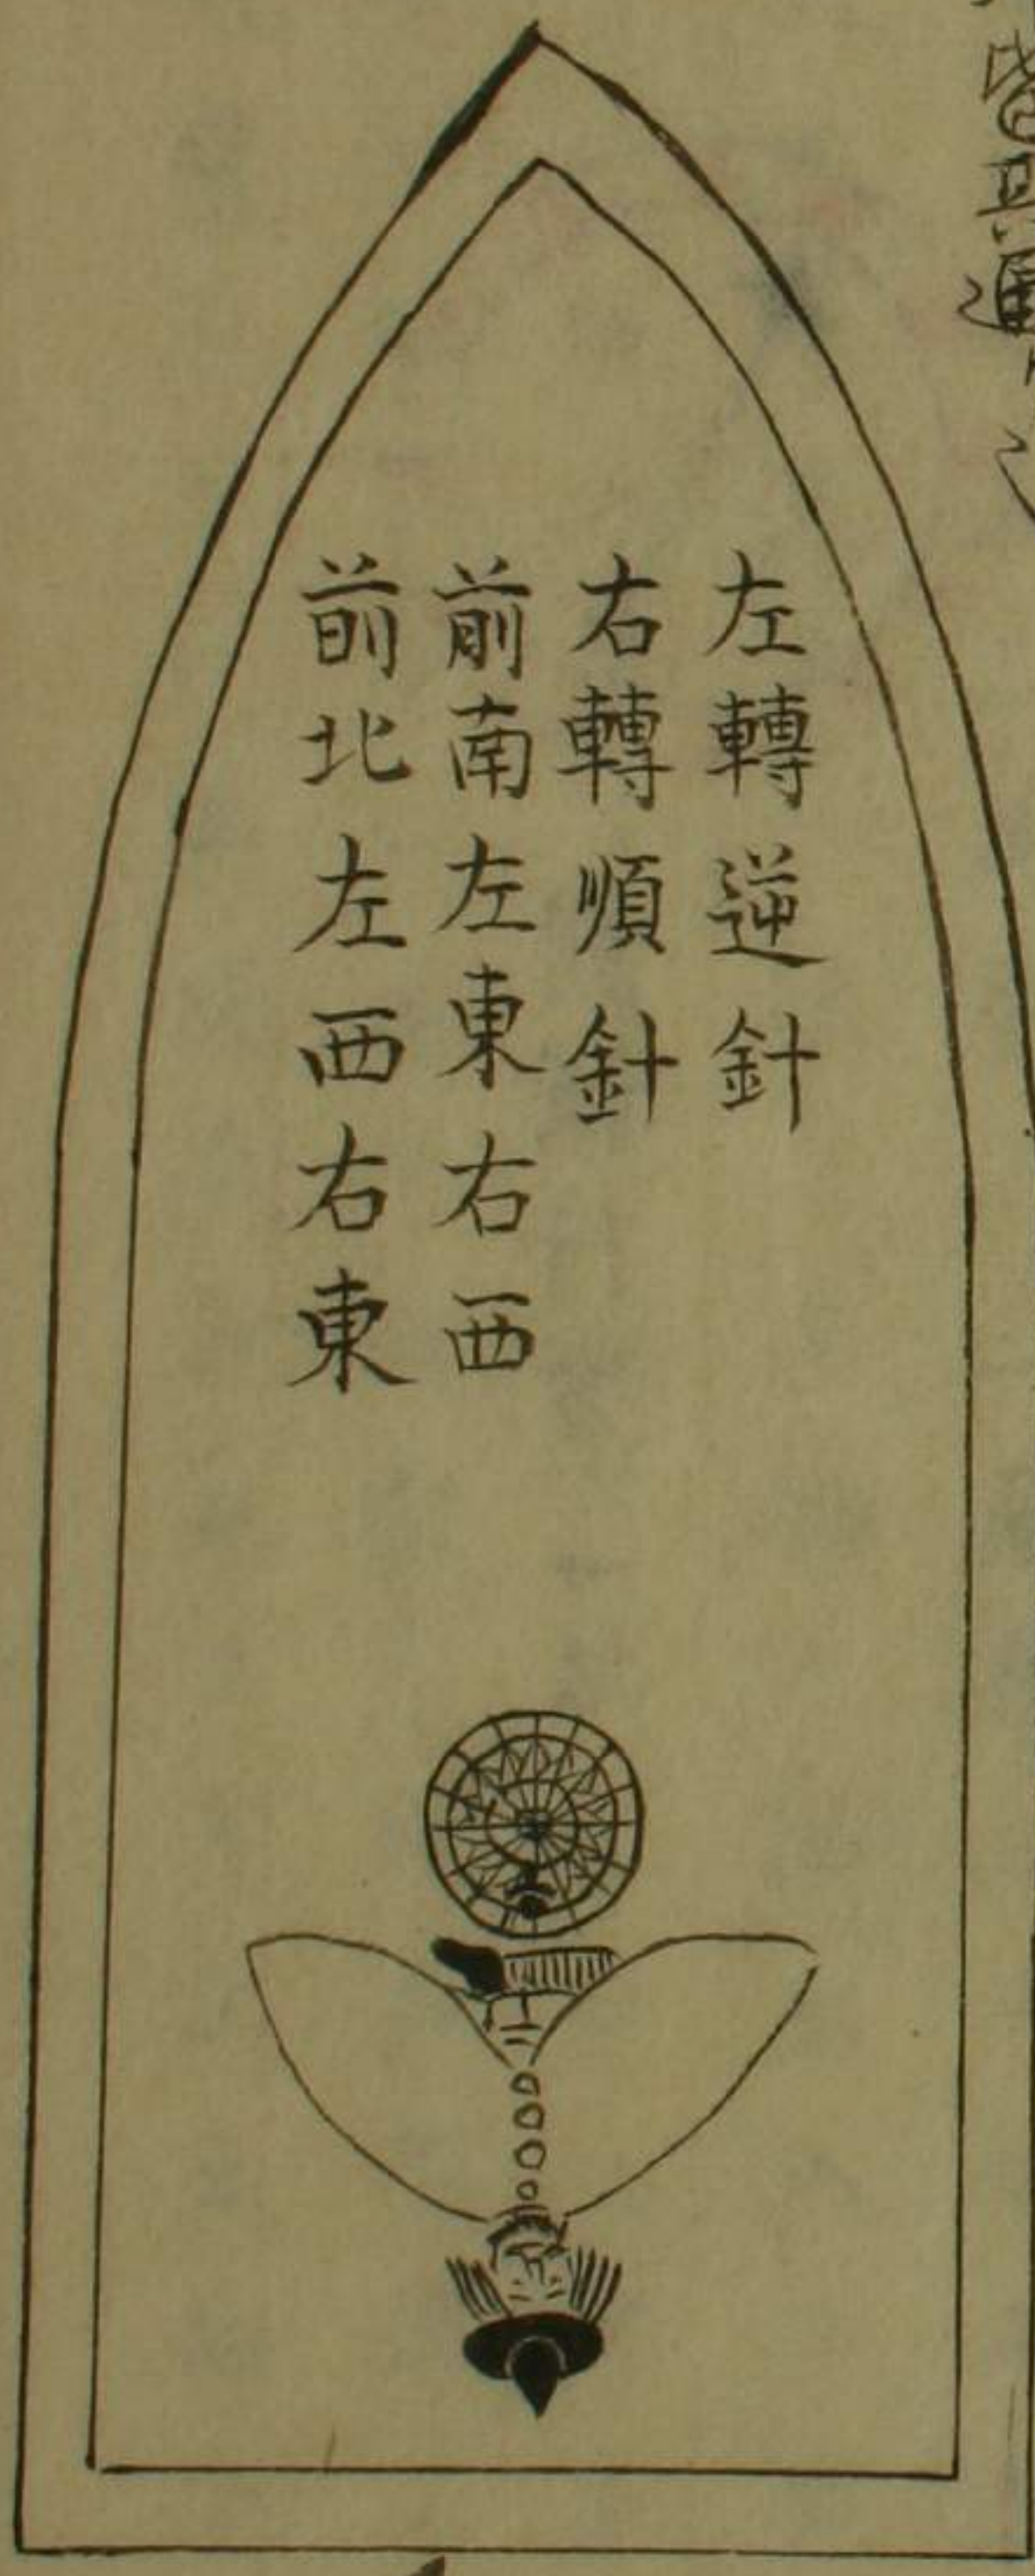 左轉逆針
右轉順針
前南左東右西
前北左西右東